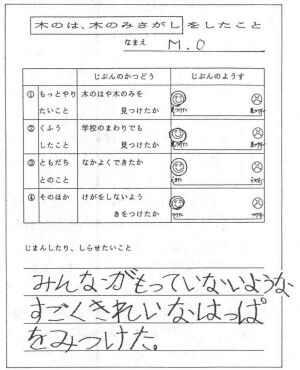 木のは、木のみさがしをしたこと
なまえ M.O
じぶんのかつどう じぶんのようす
① もっとやり 木のはや木のみを
たいこと 見つけたか
② くふう 学校のまわりでも
したこと 見つけたか
③ ともだち なかよくできたか
とのこと
④ そのほか けがをしないよう
きをつけたか
じまんしたり、しらせたいこと
みんながもっていないような
すごくきれいなはっぱ
をみつけた。